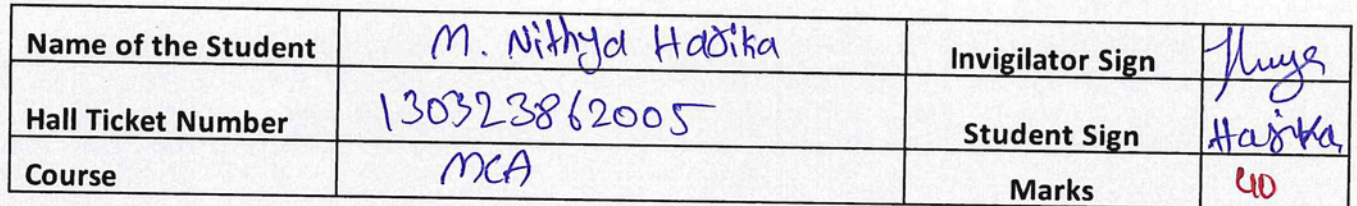 Name of the Student M. Nithya Harika Invigilator Sign
Hall Ticket Number 130323862005 Student Sign Harika
Course MCA Marks 40